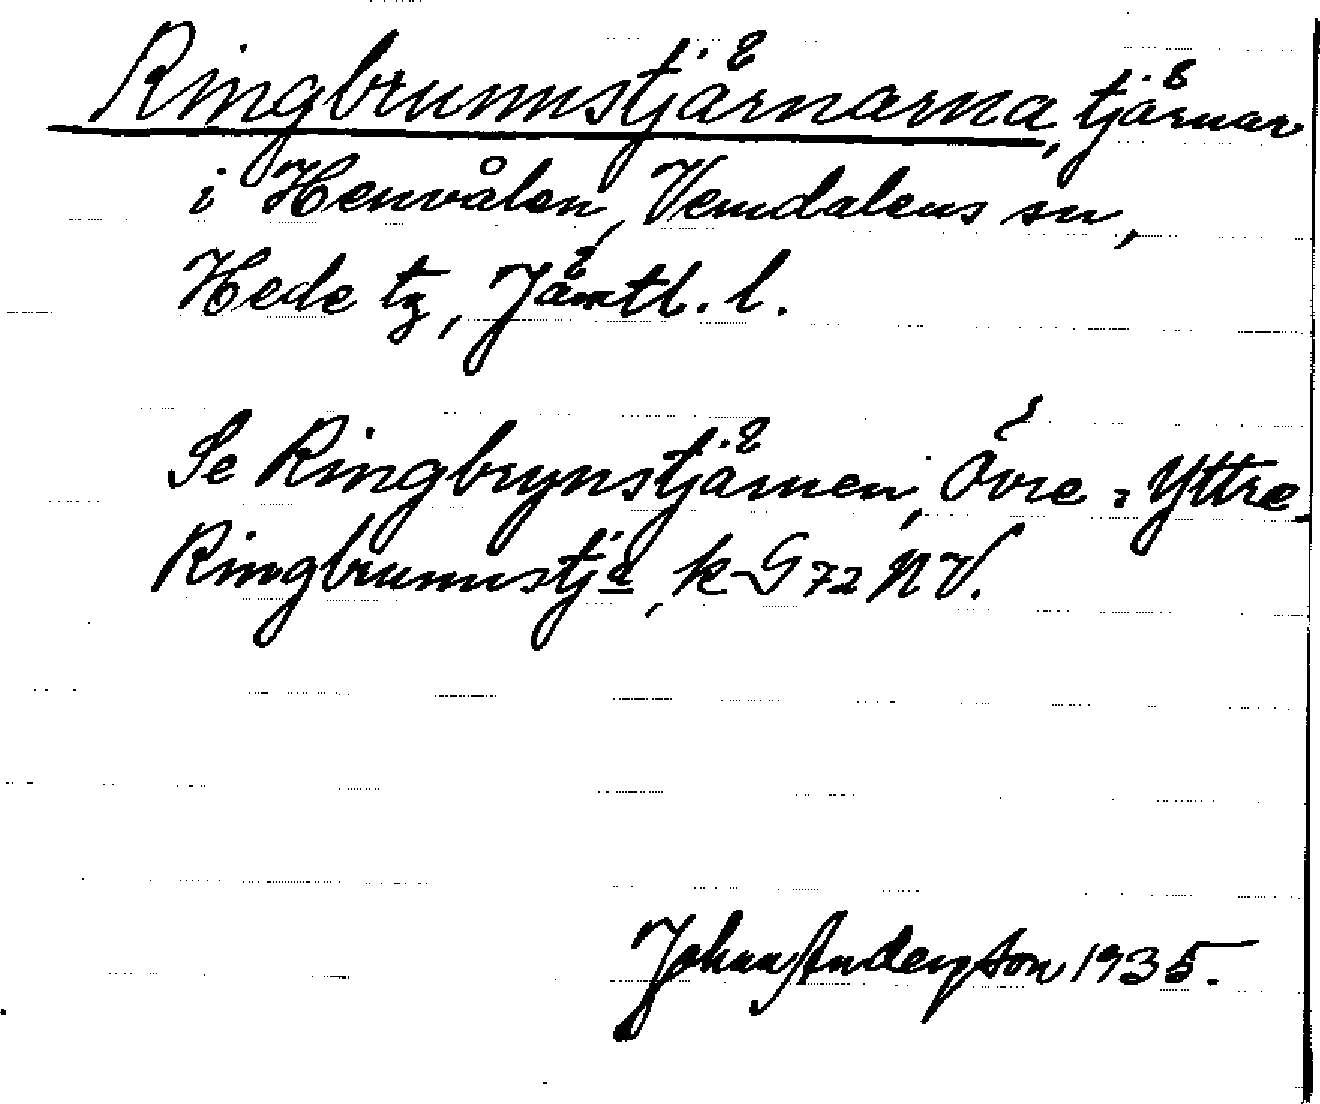 Ringbrunnstjärnarna, tjärnar
i Henvålen, Vemdalens sn,
Hede tg, Jämtl. l.
Se Ringbrynstjärnen, Övre, Yttre
Ringbrunnstj:a, k-G 72 NV.
Johan Anderson 1935.